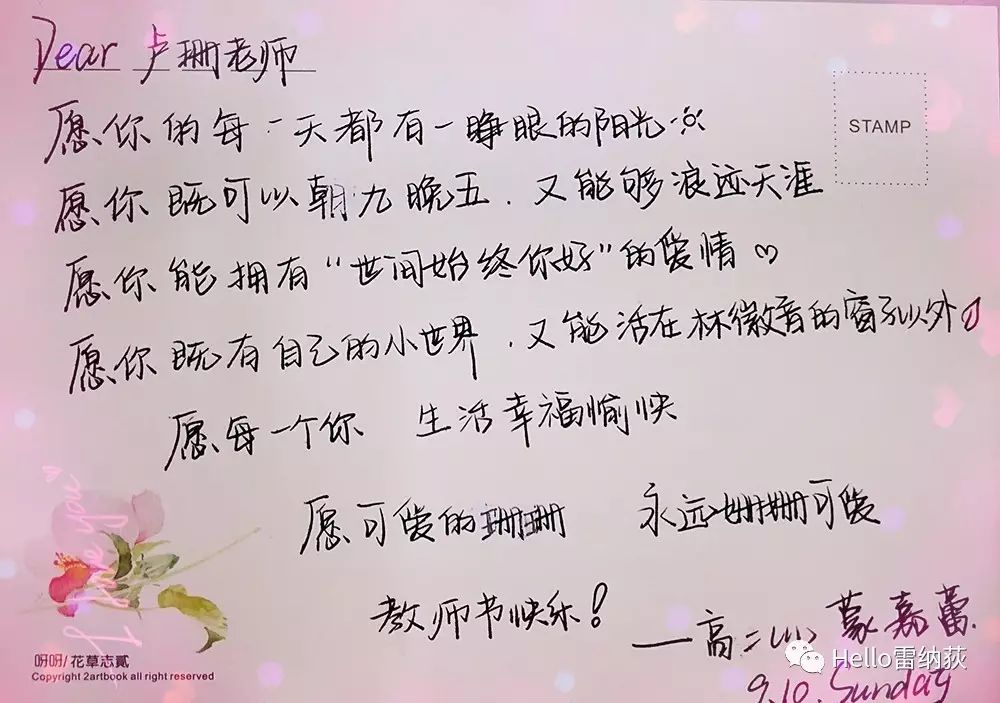 Dear 卢珊老师
愿你的每一天都有一睁眼的阳光
STAMP
愿你既可以朝九晚五，又能够浪迹天涯
愿你能拥有“世间始终你好”的爱情♡
愿你既有自己的小世界，又能活在林徽音的窗子以外
愿每一个你 生活幸福愉快
愿可爱的珊珊 永远姗姗可爱
教师节快乐！
I love you
——高二 蒙嘉蕾
9.10. Sunday
呀呀/花草志贰
Copyright 2artbook all right reserved
Hello雷纳荻